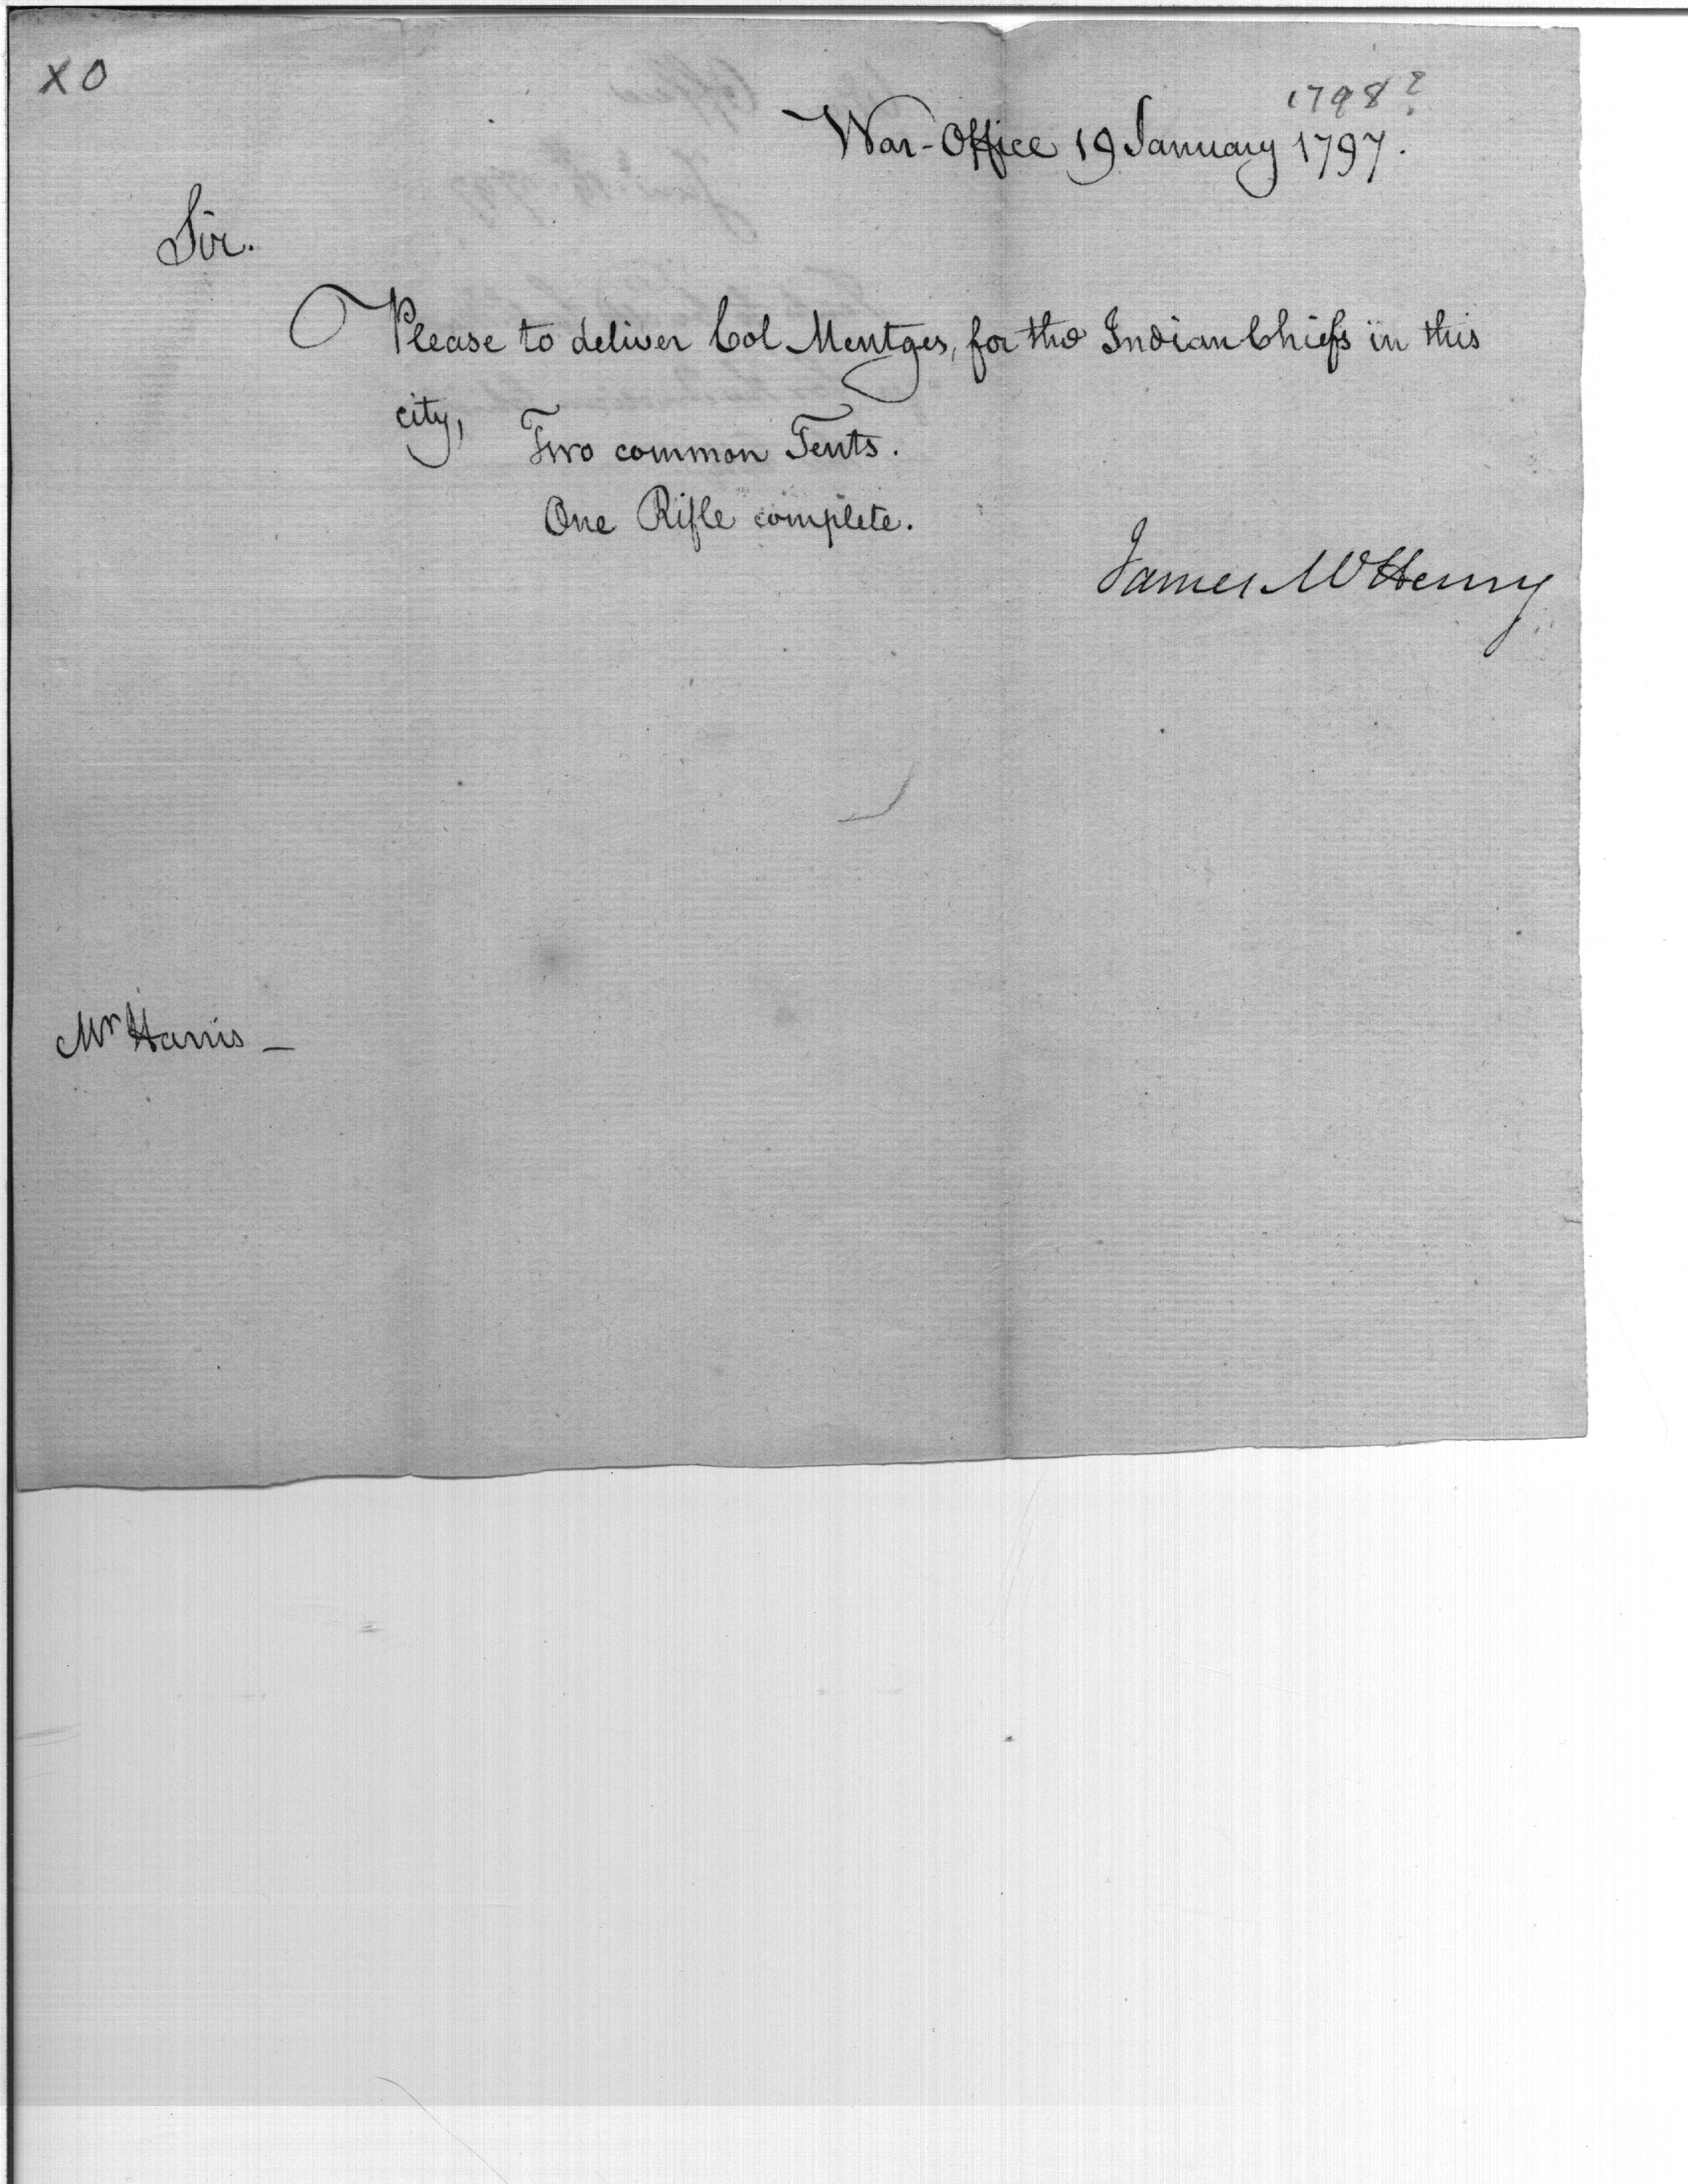 X O
1798?
War-Office 19 January 1797.
Sir.
Please to deliver Col Mentges, for the Indian Chiefs in this
city,
Two common Tents.
One Rifle complete.
James McHenry
Mr Harris -